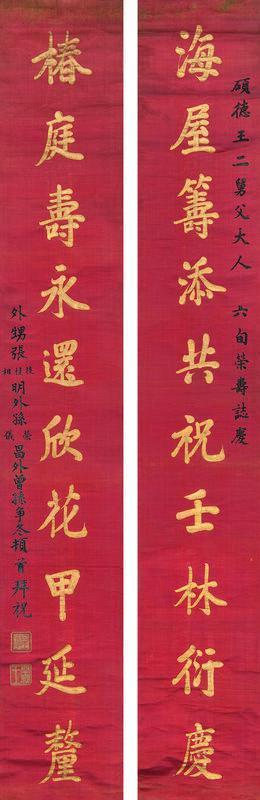 碩德王二舅父大人 六旬榮壽誌慶
海屋籌添共祝壬林衍慶
椿庭壽永還欣花甲延釐
外甥張
桂
明外孫
儀
昌外曾孫爭冬頓首拜祝